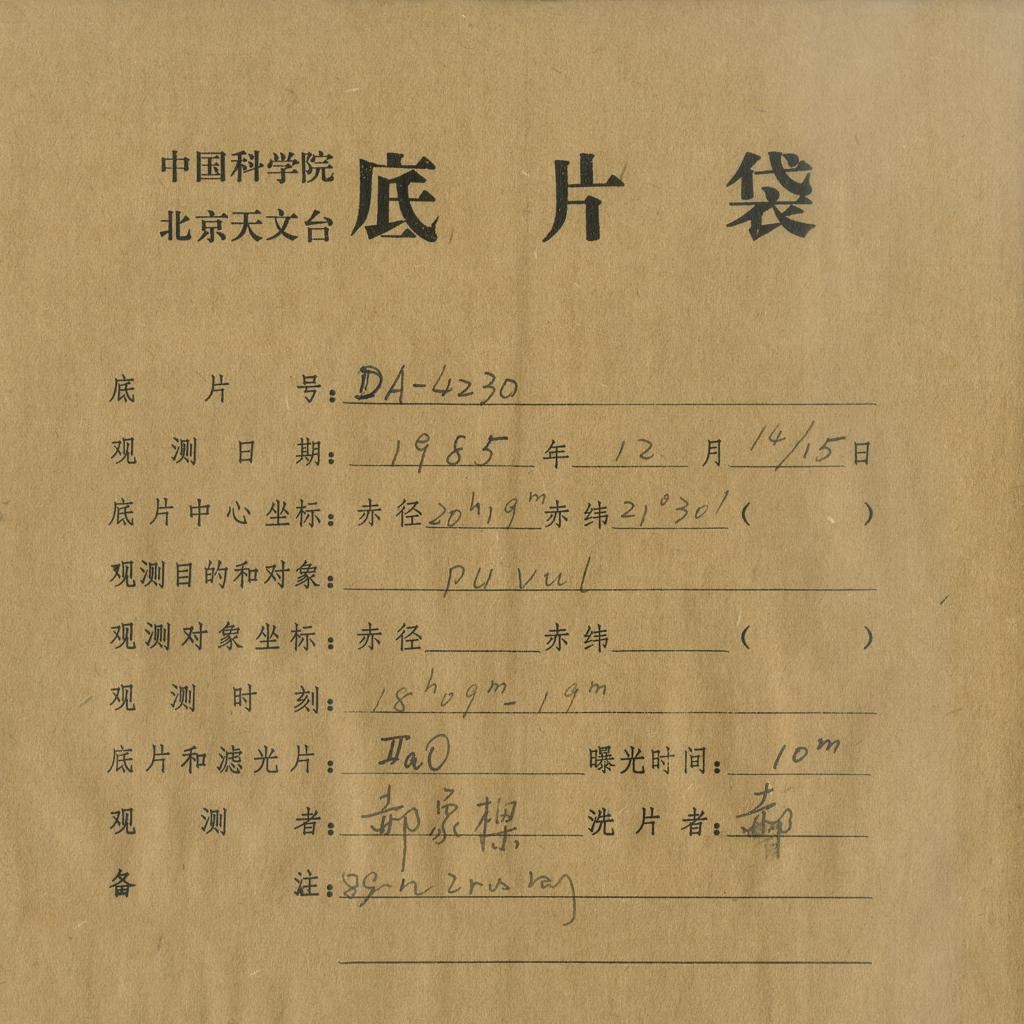 中国科学院
北京天文台
底片袋
底片号：DA-4230
观测日期：1985年12月14/15日
底片中心坐标：赤径20ʰ19ᵐ赤纬21°30′（ ）
观测目的和对象：PU vul
观测对象坐标：赤径 赤纬 （ ）
观测时刻：18ʰ09ᵐ-19ᵐ
底片和滤光片：IIaO 曝光时间：10ᵐ
观测者：郝象樑 洗片者：郝
备注：